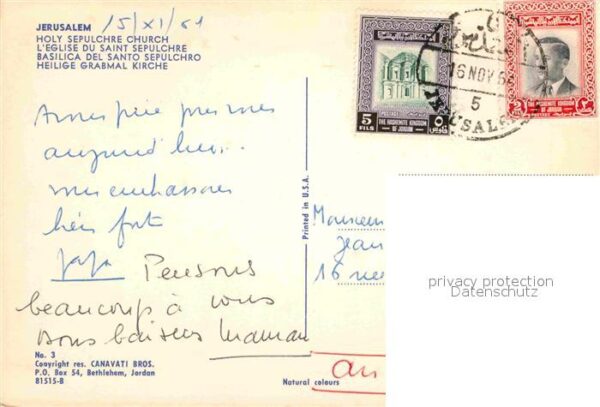 JERUSALEM 15/XI/61
HOLY SEPULCHRE CHURCH
L'EGLISE DU SAINT SEPULCRE
BASILICA DEL SANTO SEPULCHRO
HEILIGE GRABMAL KIRCHE
aujourd'hui..
bien fort
Papa Pensons
beaucoup à vous
bons baisers Maman
No. 3
Copyright res. CANAVATI BROS.
P.O. Box 54, Bethlehem, Jordan
81515-B
Natural colours
Printed in U.S.A.
5 FILS
POSTAGE
THE HASHEMITE KINGDOM
OF JORDAN
فلوس
16 NOV 6
5
JERUSALE
2
THE HASHEMITE KINGDOM
OF JORDAN
POSTAGE
Monsieur
Jean
16 rue
privacy protection
Datenschutz